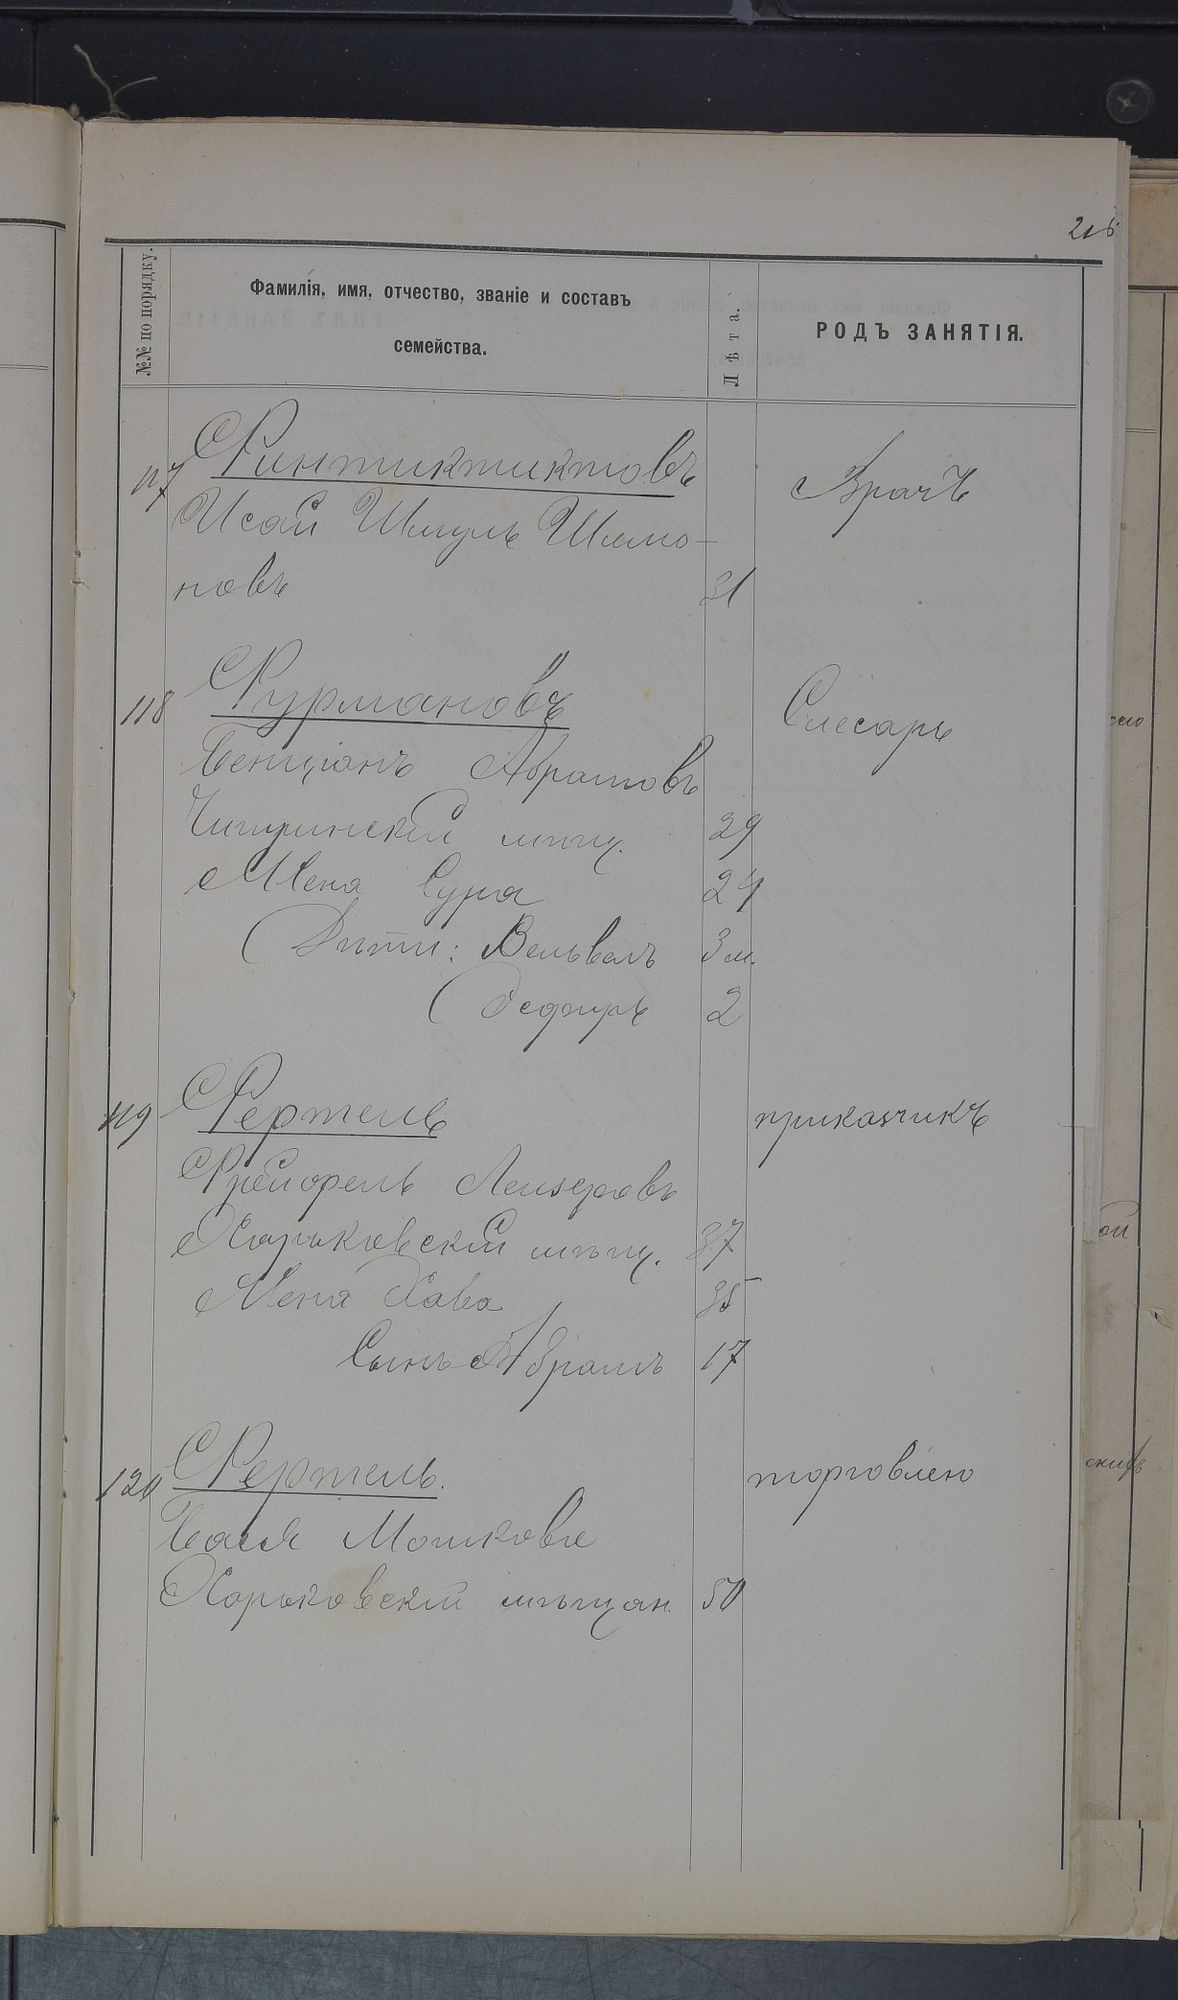 216
№№ по порядку.
Фамилія, имя, отчество, званіе и составъ
семейства.
Лѣта.
РОДЪ ЗАНЯТІЯ.
117 Финтиктиктовъ Врачъ
Исай Шмуль Шимо-
новъ 31
118 Фурмановъ Слесарь
Бенціанъ Абрамовъ
Чигиринскій мѣщ. 29
Жена Сура 24
Дѣти: Вельвелъ 3 м.
Эсфирь 2
119 Фертель приказчикъ
Лейзеровъ
Харьковскій мѣщ. 37
Жена Хава 35
Сынъ Абрамъ 17
120 Фертель. торговлею
Бася Мошкова
Харьковскій мѣщан. 50